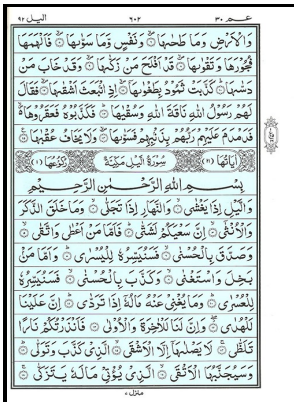 اليل ٩٢ ٦٠٢ عـم ٣٠
وَالْاَرْضِ وَمَا طَحٰىهَا ۙ وَنَفْسٍ وَّمَا سَوّٰىهَا ۙ فَاَلْهَمَهَا
فُجُوْرَهَا وَتَقْوٰىهَا ۙ قَدْ اَفْلَحَ مَنْ زَكّٰىهَا ۙ وَقَدْ خَابَ مَنْ
دَسّٰىهَا ؕ كَذَّبَتْ ثَمُوْدُ بِطَغْوٰىهَا ۙ اِذِ انْۢبَعَثَ اَشْقٰىهَا ۙ فَقَالَ
لَهُمْ رَسُوْلُ اللّٰهِ نَاقَةَ اللّٰهِ وَسُقْيٰهَا ؕ فَكَذَّبُوْهُ فَعَقَرُوْهَا ۙ
فَدَمْدَمَ عَلَيْهِمْ رَبُّهُمْ بِذَنْۢبِهِمْ فَسَوّٰىهَا ۙ وَلَا يَخَافُ عُقْبٰهَا
اٰيَاتُهَا (٢١) سُوْرَةُ الَّيْلِ مَكِّيَّةٌ رُكُوْعُهَا (١)
بِسْمِ اللّٰهِ الرَّحْمٰنِ الرَّحِيْمِ
وَالَّيْلِ اِذَا يَغْشٰى ۙ وَالنَّهَارِ اِذَا تَجَلّٰى ۙ وَمَا خَلَقَ الذَّكَرَ
وَالْاُنْثٰۤى ۙ اِنَّ سَعْيَكُمْ لَشَتّٰى ؕ فَاَمَّا مَنْ اَعْطٰى وَاتَّقٰى ۙ
وَصَدَّقَ بِالْحُسْنٰى ۙ فَسَنُيَسِّرُهٗ لِلْيُسْرٰى ؕ وَاَمَّا مَنْۢ
بَخِلَ وَاسْتَغْنٰى ۙ وَكَذَّبَ بِالْحُسْنٰى ۙ فَسَنُيَسِّرُهٗ
لِلْعُسْرٰى ؕ وَمَا يُغْنِيْ عَنْهُ مَالُهٗۤ اِذَا تَرَدّٰى ؕ اِنَّ عَلَيْنَا
لَلْهُدٰى ۖ وَاِنَّ لَنَا لَلْاٰخِرَةَ وَالْاُوْلٰى فَاَنْذَرْتُكُمْ نَارًا
تَلَظّٰى ۚ لَا يَصْلٰىهَاۤ اِلَّا الْاَشْقَى ۙ الَّذِيْ كَذَّبَ وَتَوَلّٰى ؕ
وَسَيُجَنَّبُهَا الْاَتْقَى ۙ الَّذِيْ يُؤْتِيْ مَالَهٗ يَتَزَكّٰى ۚ
منزل ٧